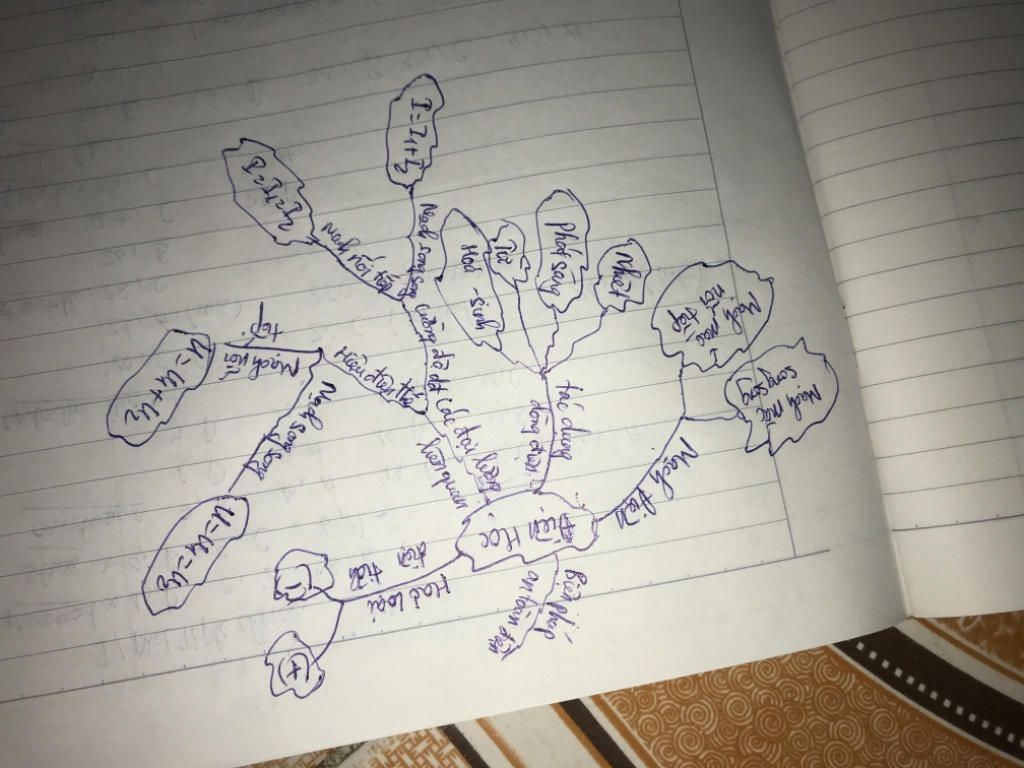 Điện Học
Mạch điện
Mạch mắc
nối tiếp
Mạch mắc
song song
tác dụng
dòng điện
Nhiệt
Phát sáng
Từ
Hoá - sinh
các đại lượng
liên quan
cường độ dđ
Mạch song song
I = I₁ + I₂
Mạch nối tiếp
Hiệu điện thế
Mạch nối
tiếp
U = U₁ + U₂
Mạch song song
U = U₁ = U₂
Hai loại
điện tích
(-)
(+)
Biện pháp
an toàn điện